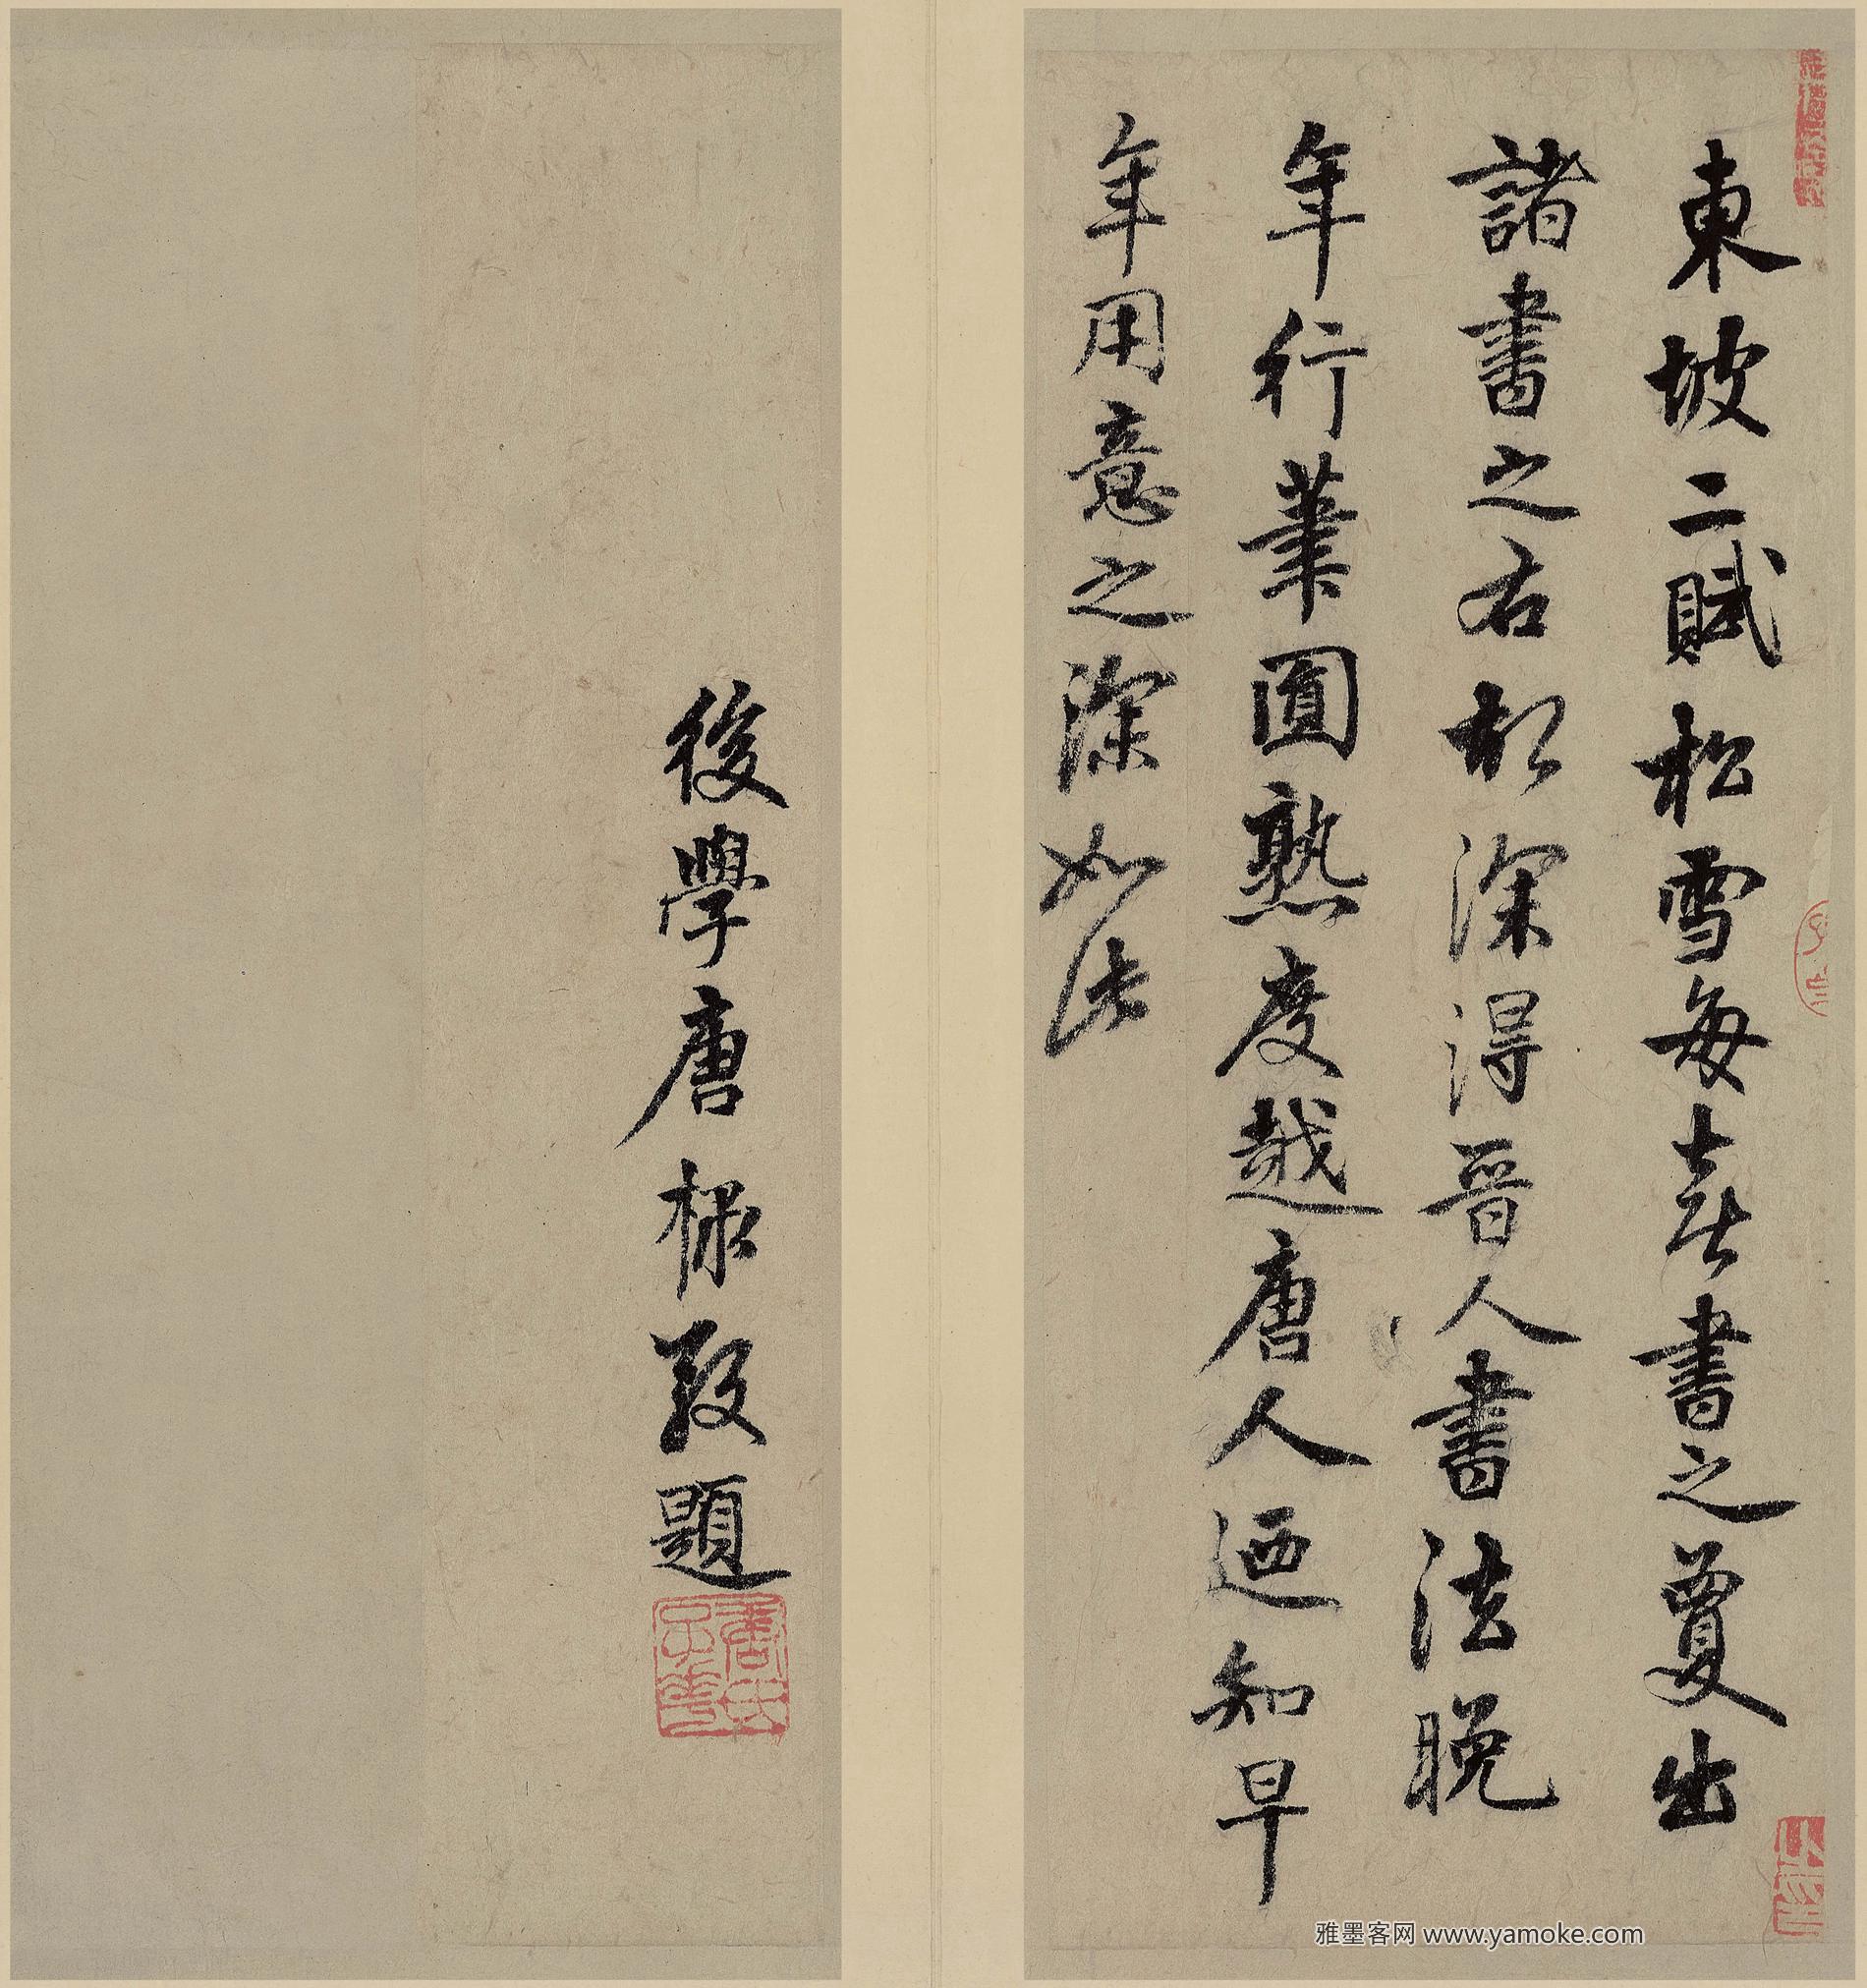 東坡二賦松雪每喜書之夐出
諸書之右都深得晉人書法晚
年行筆圓熟度越唐人迺知早
年用意之深如此
後學唐棣敬題
雅墨客网 www.yamoke.com